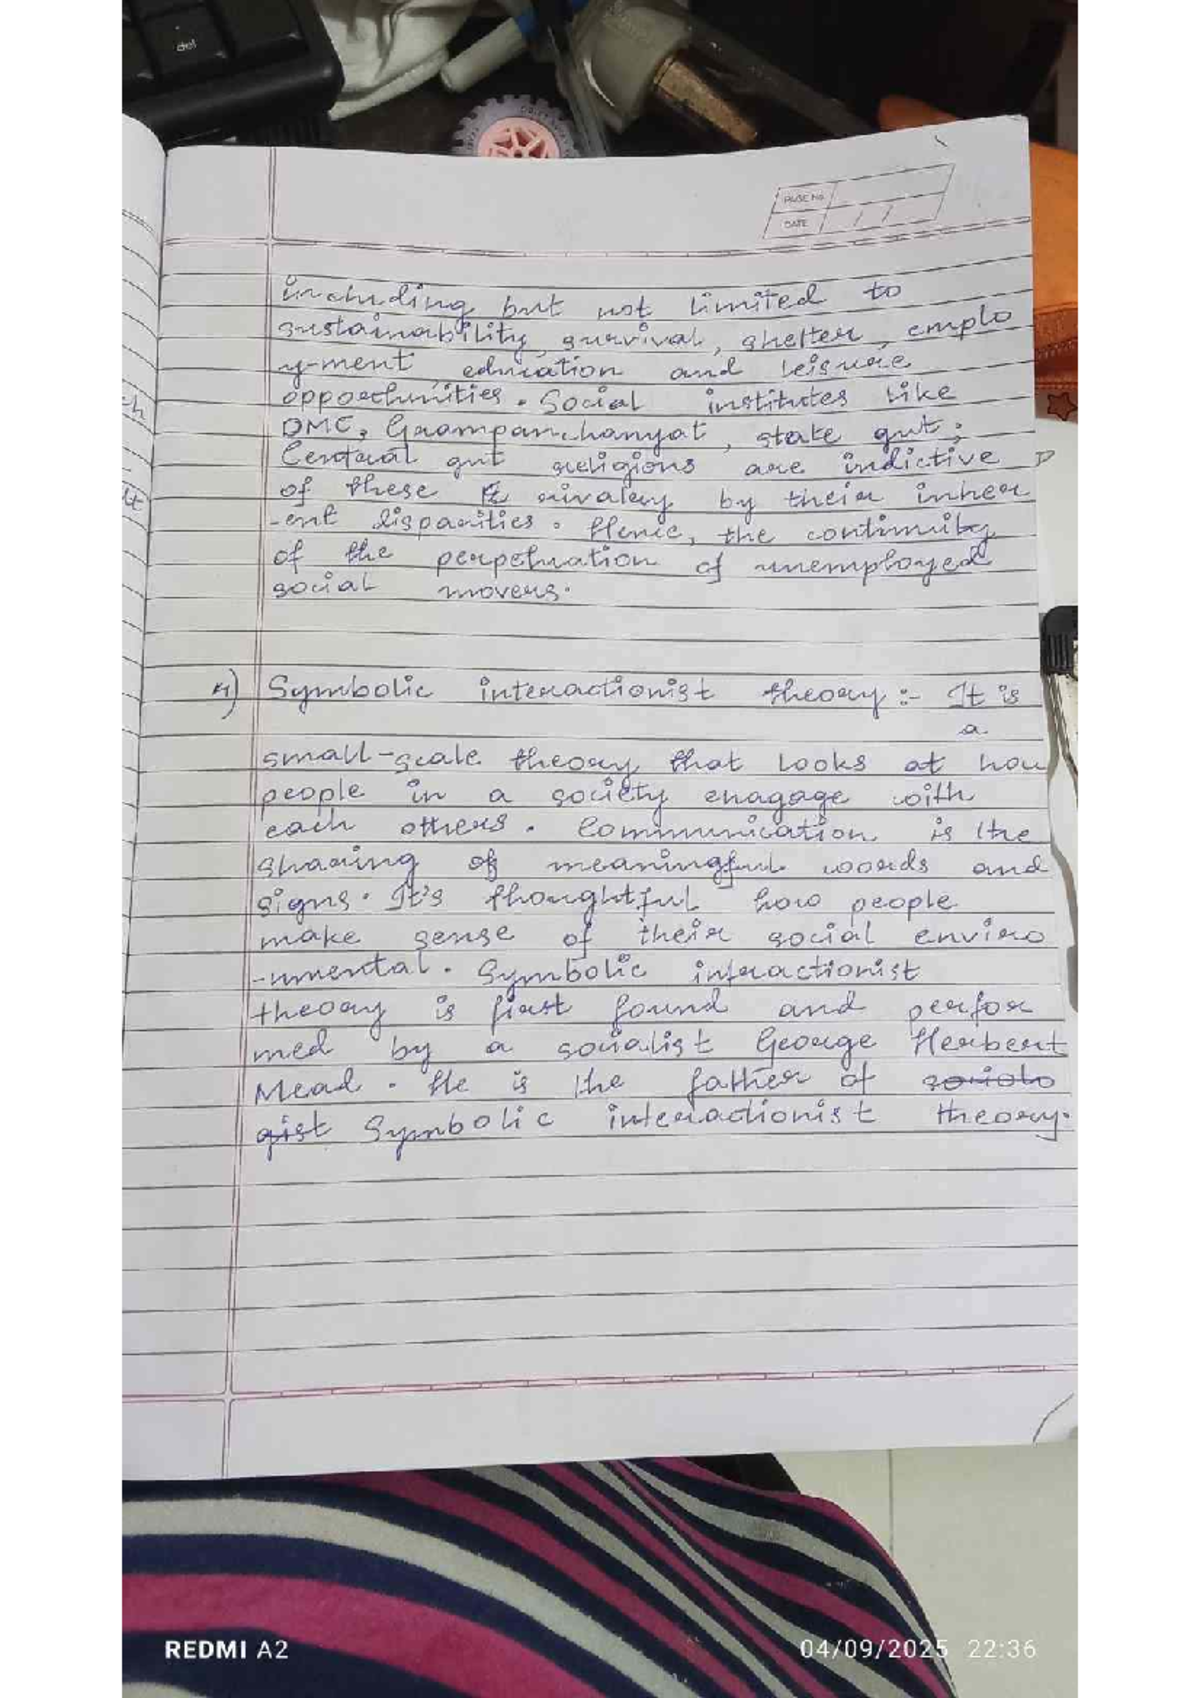 del
PAGE No.
DATE / /
including but not limited to
sustainability, survival, shelter, emplo
y-ment, education and leisure
opportunities. Social institutes like
DMC, Grampanchanyat, state gut,
Central gut religions are indictive
of these rivalry by their inher
-ent disparities. Hence, the continuity
of the perpetuation of unemployed
social movers.
4) Symbolic interactionist theory :- It is
a
small-scale theory that looks at how
people in a society enagage with
each others. Communication is the
sharing of meaningful words and
signs. It's thoughtful how people
make sense of their social enviro
-nmental. Symbolic interactionist
theory is first found and perfor
med by a socialist George Herbert
Mead. He is the father of sociolo
gist Symbolic interactionist theory.
ch
lt
REDMI A2
04/09/2025 22:36